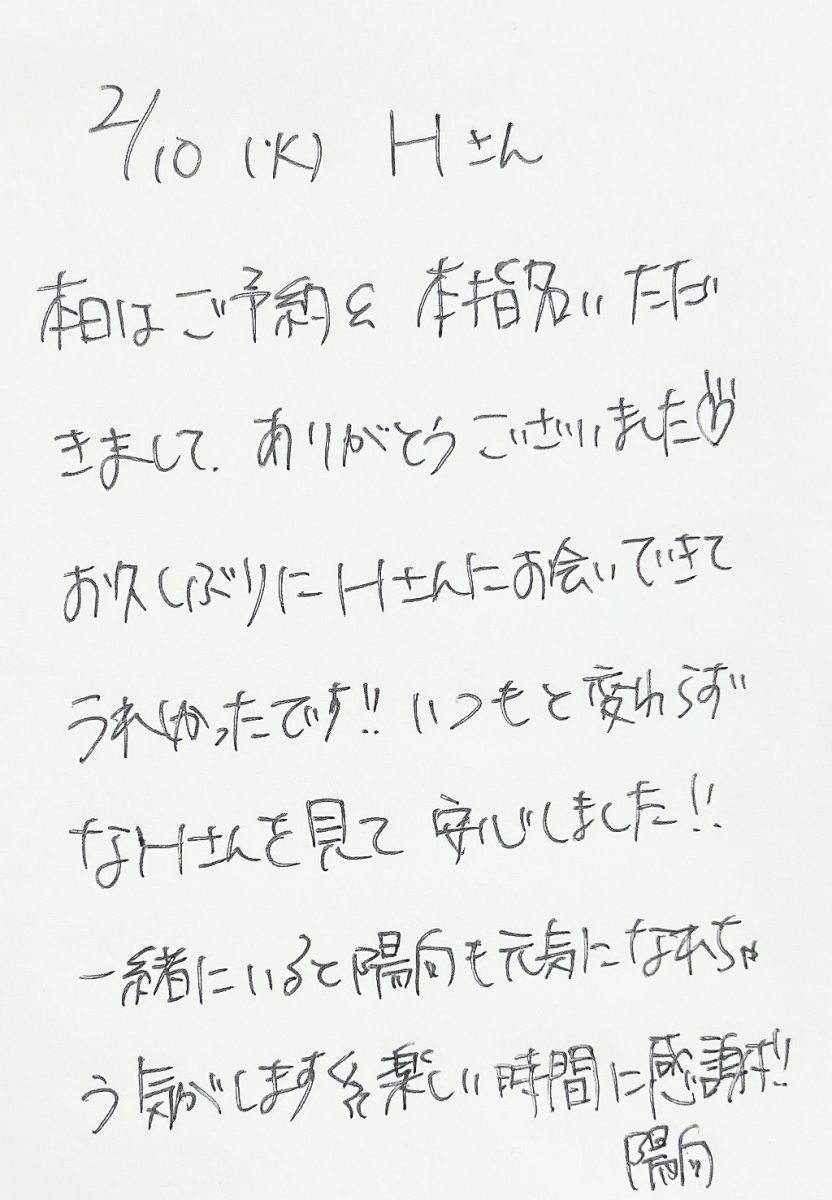 2/10 (火) Hさん
本日はご予約&本指名いただ
きまして、ありがとうございました♡
お久しぶりにHさんにお会いできて
うれしかったです!! いつもと変わらず
なHさんを見て 安心しました!!
一緒にいると陽向も元気になれちゃ
う気がします 楽しい時間に感謝です!!
陽向